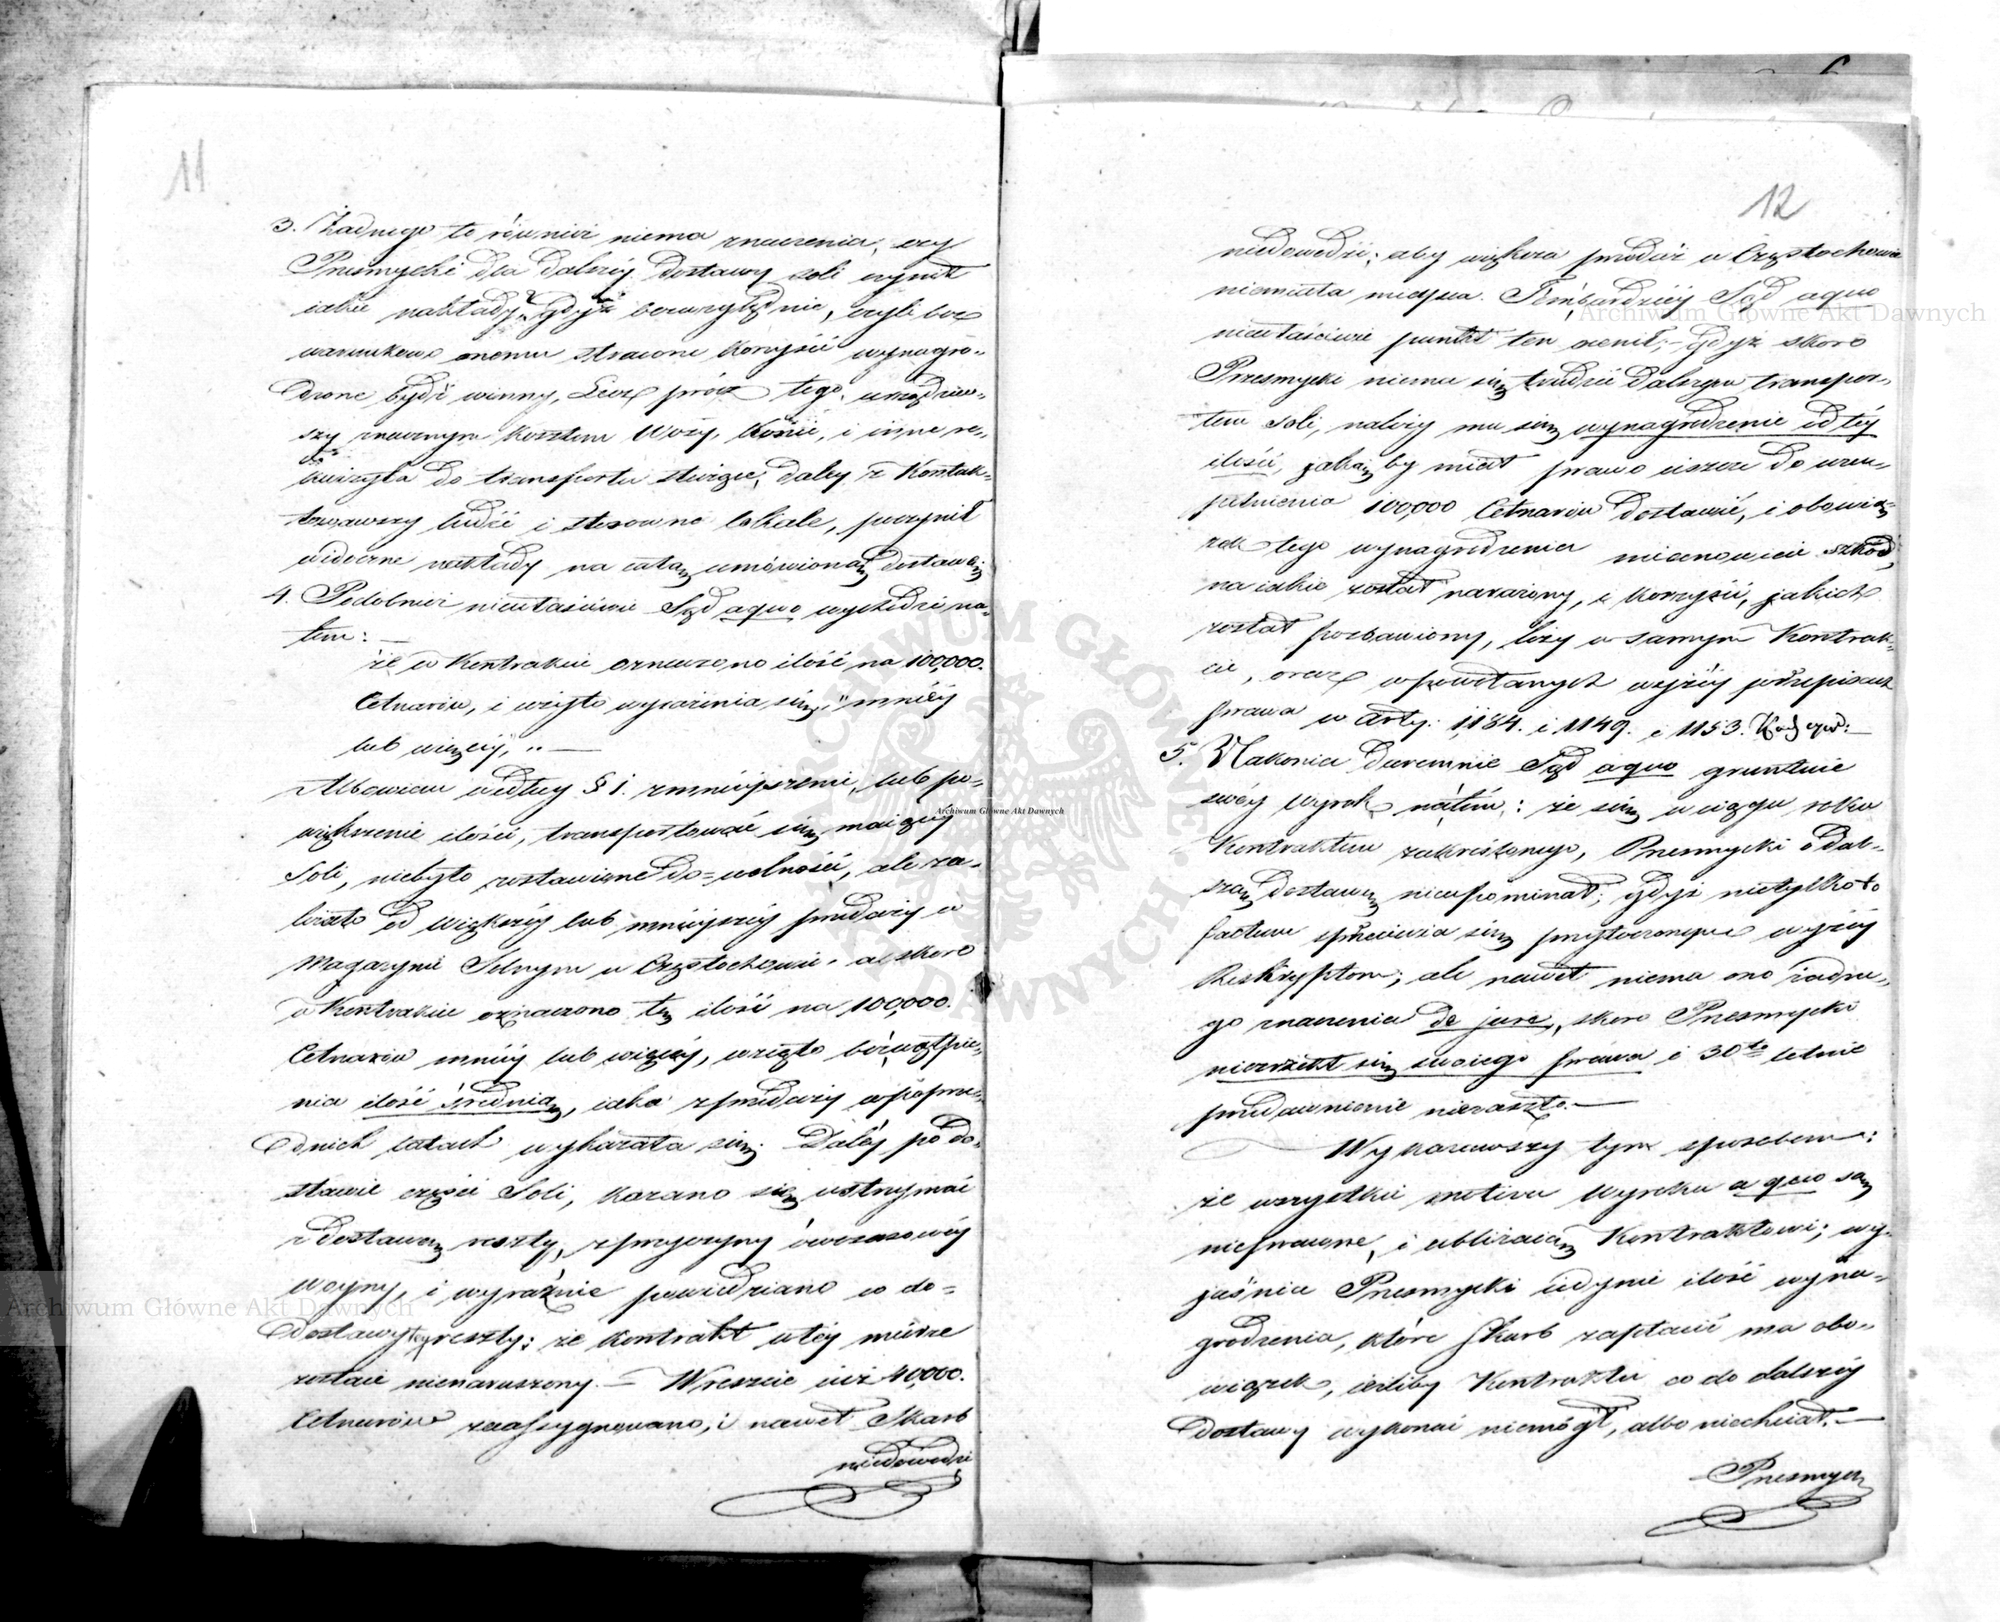 11
3. Żadnego to również niema znaczenia, czy
Przesmycki dla dalszéy dostawy soli czynił
iakie nakłady, gdyż bezwzględnie, czyli bez
warunkowo onemu stracone korzyści wynagro-
dzone bydź winny, Lecz prócz tego, urządziw-
szy znacznym kosztem Wozy, Konie, i inne re-
kwizyta do transportu służące, daley z Kontrak-
towawszy ludzi i stosowne lokale, poczynił
widoczne nakłady na całą umówioną dostawę;
4. Podobnież niewłaściwie Sąd a quo wychodzi na-
tem: —
że w Kontrakcie oznaczono ilość na 100,000.
Cetnarów, i użyto wyrażenia się, "mniéy
lub więcéy," —
Albowiem według § 1. zmnieyszenie, lub po-
większenie ilości, transportować się maiącéy
Soli, niebyło zostawione do=wolności, ale za-
leżało od większéy lub mnieyszéy przedaży w
Magazynie Solnym w Częstochowie. a skoro
w Kontrakcie oznaczono tę ilość na 100,000.
Cetnarów mniéy lub więcéy, wzięto bezwątpie-
nia ilość średnią, iaka z przedaży w poprze-
dnich latach wykazała się. Daléy po do-
stawie części Soli, kazano się wstrzymać
z dostawą reszty, z przyczyny ówczasowéy
woyny, i wyraźnie powiedziano co do=
dostawy téy reszty; że kontrakt w téy mierze
zostaie nienaruszony. — Wreszcie iuż 40,000.
Cetnarów zaassygnowano, i nawet Skarb
niedowodzi
12
niedowodzi; aby większa przedaż w Częstochowie
niemiała mieysca. Témbardziéy Sąd a quo
niewłaściwie punkt ten cenił; — gdyż skoro
Przesmycki niema się trudzić dalszym transpor-
tem soli, należy mu się wynagrodzenie od téy
ilości, jakąby miał prawo ieszcze do uzu-
pełnienia 100,000 Cetnarów dostawić, i obowią-
zek tego wynagrodzenia mianowicie szkód,
na iakie został narażony, i korzyści, jakich
został pozbawiony, leży w samym Kontrak-
cie, oraz w powołanych wyżéy przepisach
prawa w Arty: 1184. i 1149. i 1153. Kod: cyw: —
5. Nakoniec daremnie Sąd a quo gruntuie
swóy wyrok na tém: że się w ciągu roku
Kontraktem zakreślonego, Przesmycki o dal-
szą dostawę nieupominał; gdyż nietylko to
factum sprzeciwia się przytoczonym wyżéy
Reskryptom; ale nawet niema ono żadne-
go znaczenia de jure, skoro Przesmycki
niezrzekł się swoiego prawa i 30to letnie
przedawnienie niezaszło. —
Wykazawszy tym sposobem:
że wszystkie motiva wyroku a quo są
nieprawne, i ubliżaią Kontraktowi; wy-
jaśnia Przesmycki iedynie ilość wyna-
grodzenia, które Skarb zapłacić ma obo-
wiązek, ieżliby Kontraktu co do dalszéy
dostawy wykonać niemógł, albo niechciał. —
Przesmyc